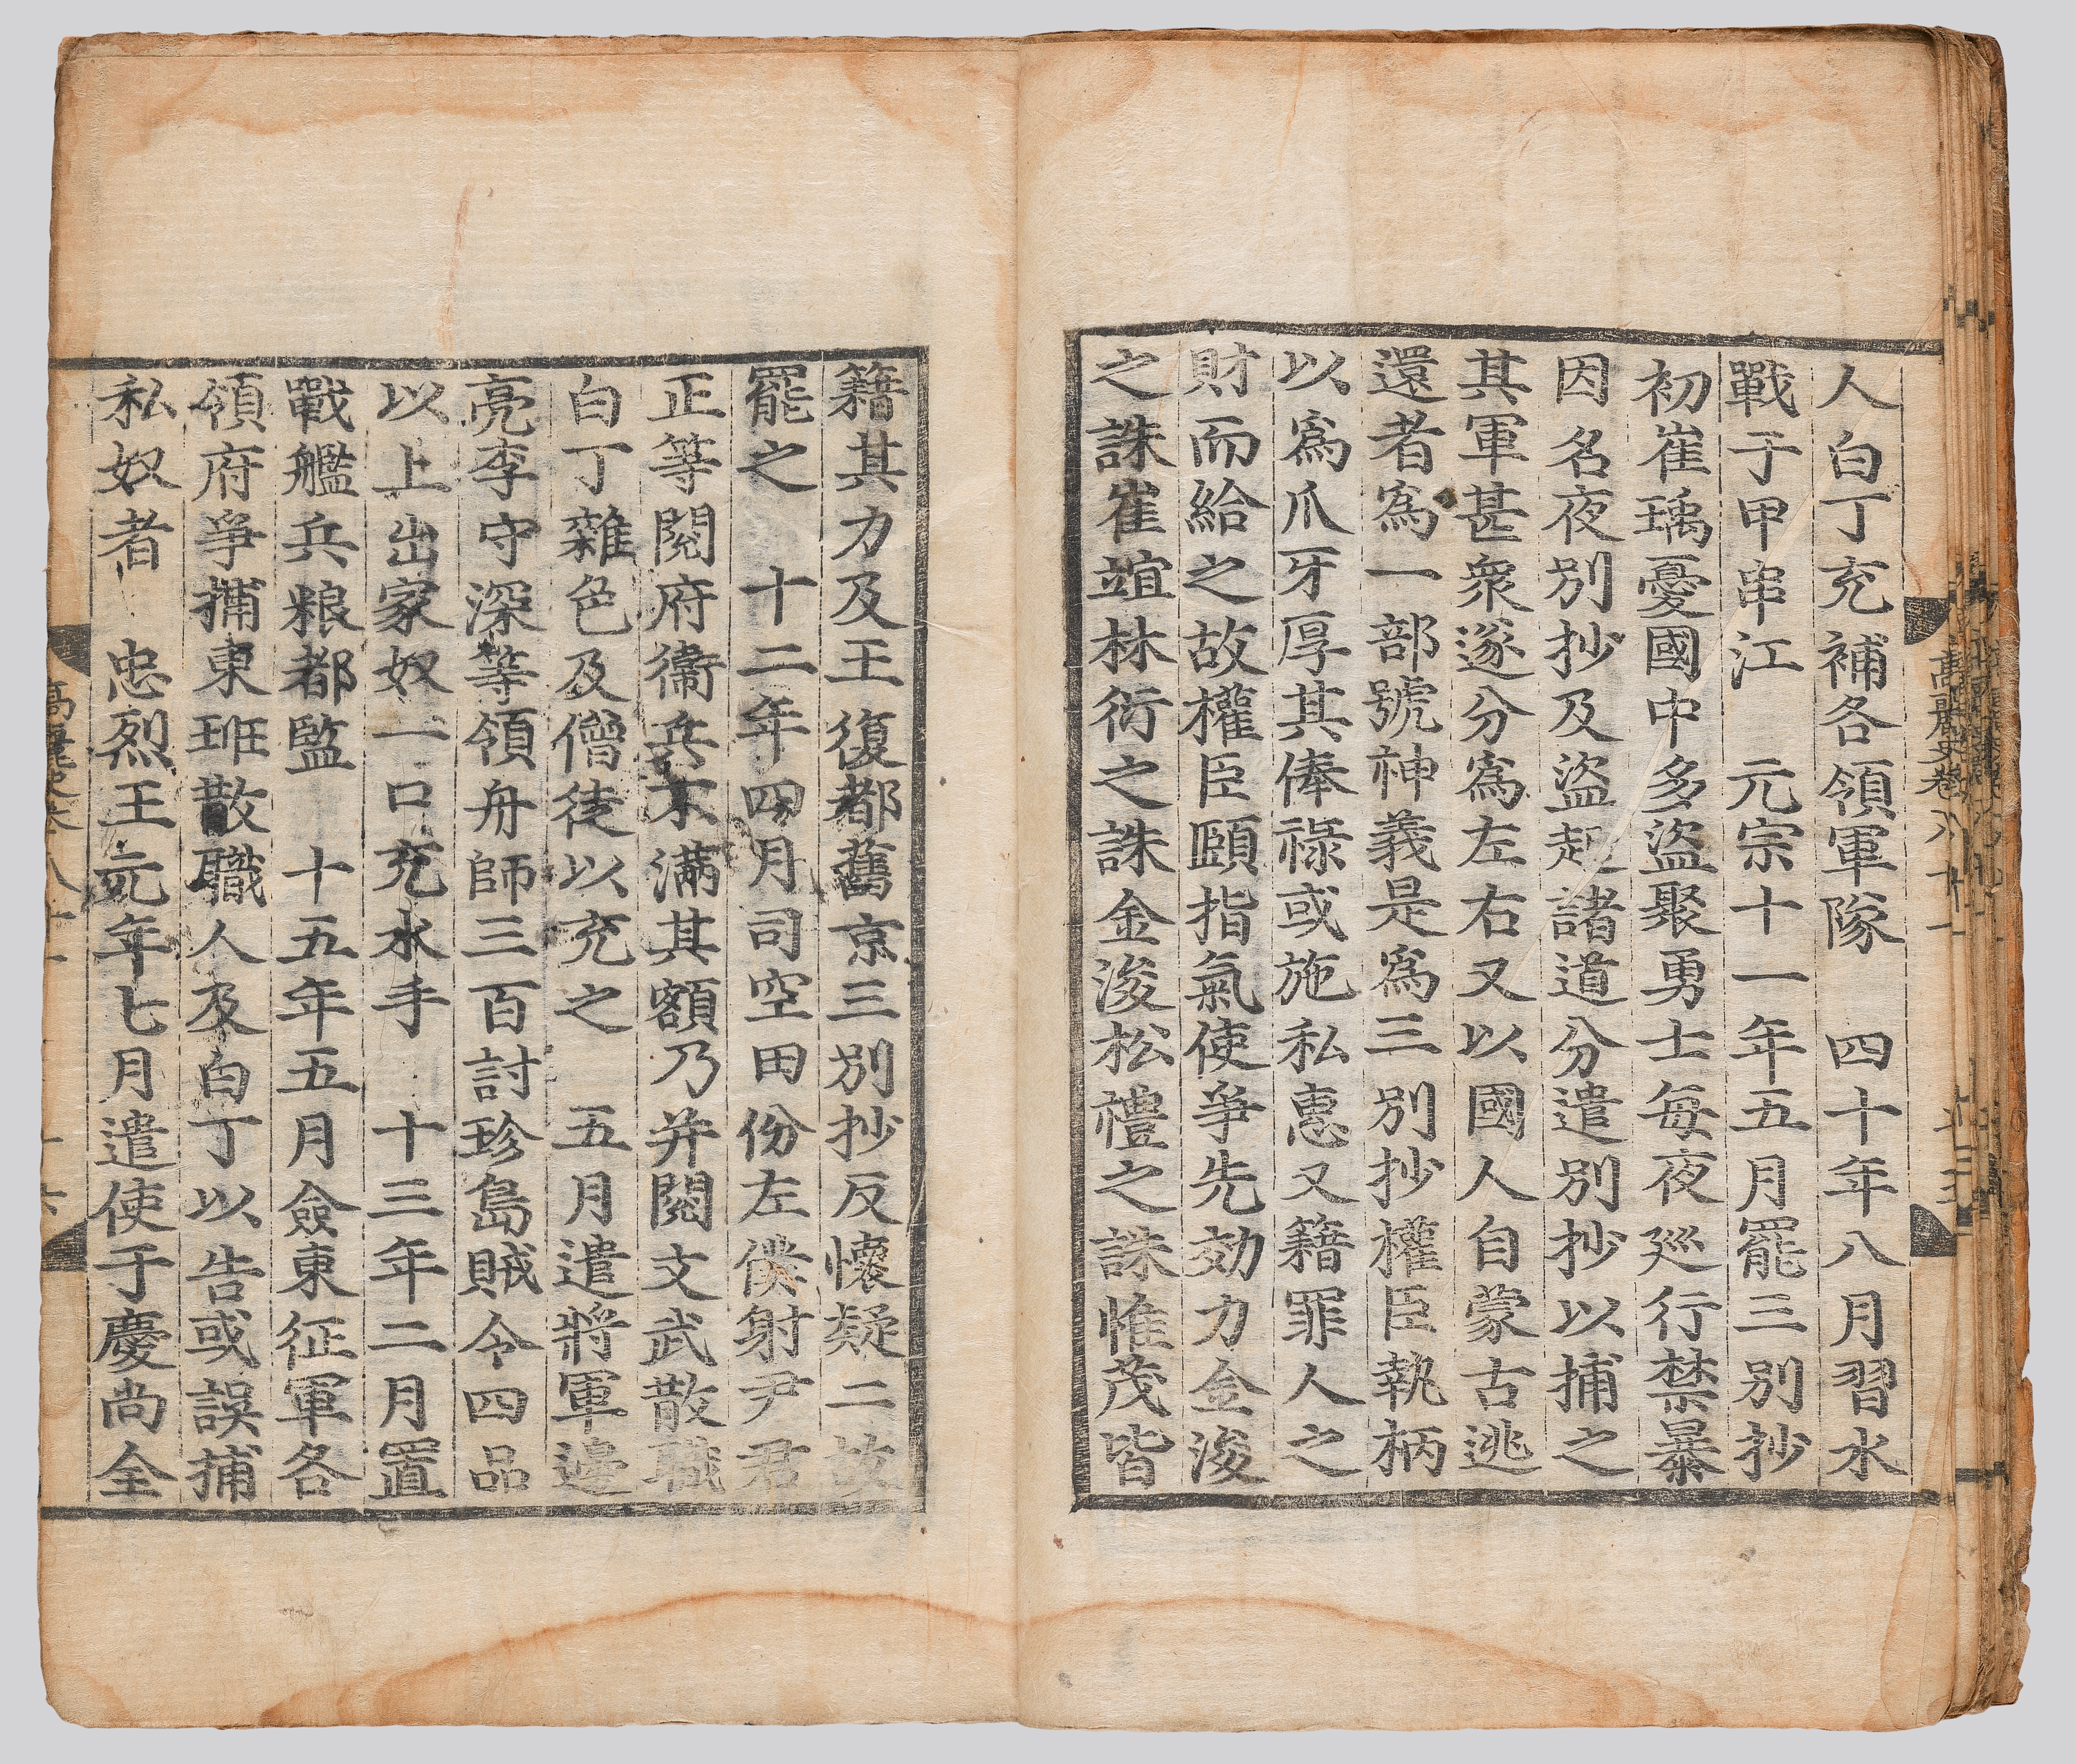 人白丁充補各領軍隊　四十年八月習水
戰于甲串江　元宗十一年五月罷三別抄
初崔瑀憂國中多盜聚勇士每夜廵行禁暴
因名夜別抄及盜起諸道分遣別抄以捕之
其軍甚衆遂分爲左右又以國人自蒙古逃
還者爲一部號神義是爲三別抄權臣執柄
以爲爪牙厚其俸祿或施私惠又籍罪人之
財而給之故權臣頤指氣使爭先効力金浚
之誅崔竩林衍之誅金浚松禮之誅惟茂皆
籍其力及王復都舊京三別抄反懷疑二故
罷之　十二年四月司空田份左僕射尹君
正等閱府衞兵不滿其額乃并閱文武散職
白丁雜色及僧徒以充之　五月遣將軍邊
亮李守深等領舟師三百討珍島賊令四品
以上出家奴一口充水手　十三年二月置
戰艦兵粮都監　十五年五月僉東征軍各
領府爭捕東班散職人及白丁以告或誤捕
私奴者　忠烈王元年七月遣使于慶尚全
高麗史卷八十一